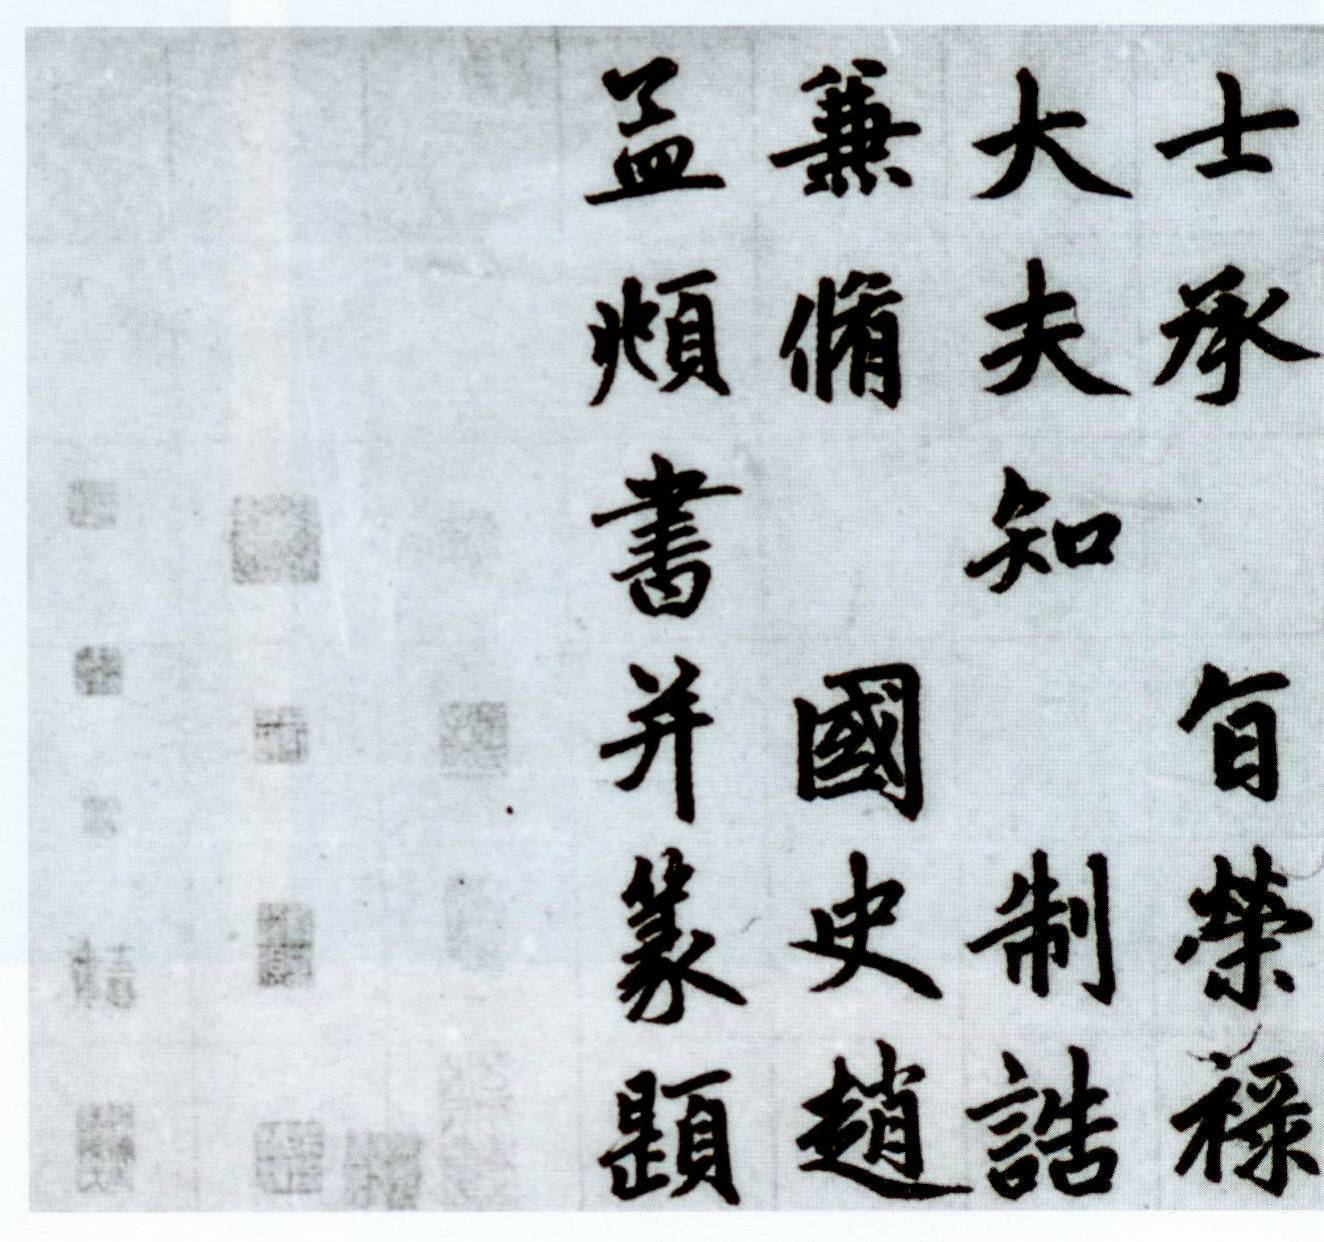 士承 旨榮祿
大夫知 制誥
兼脩 國史趙
孟頫書并篆題